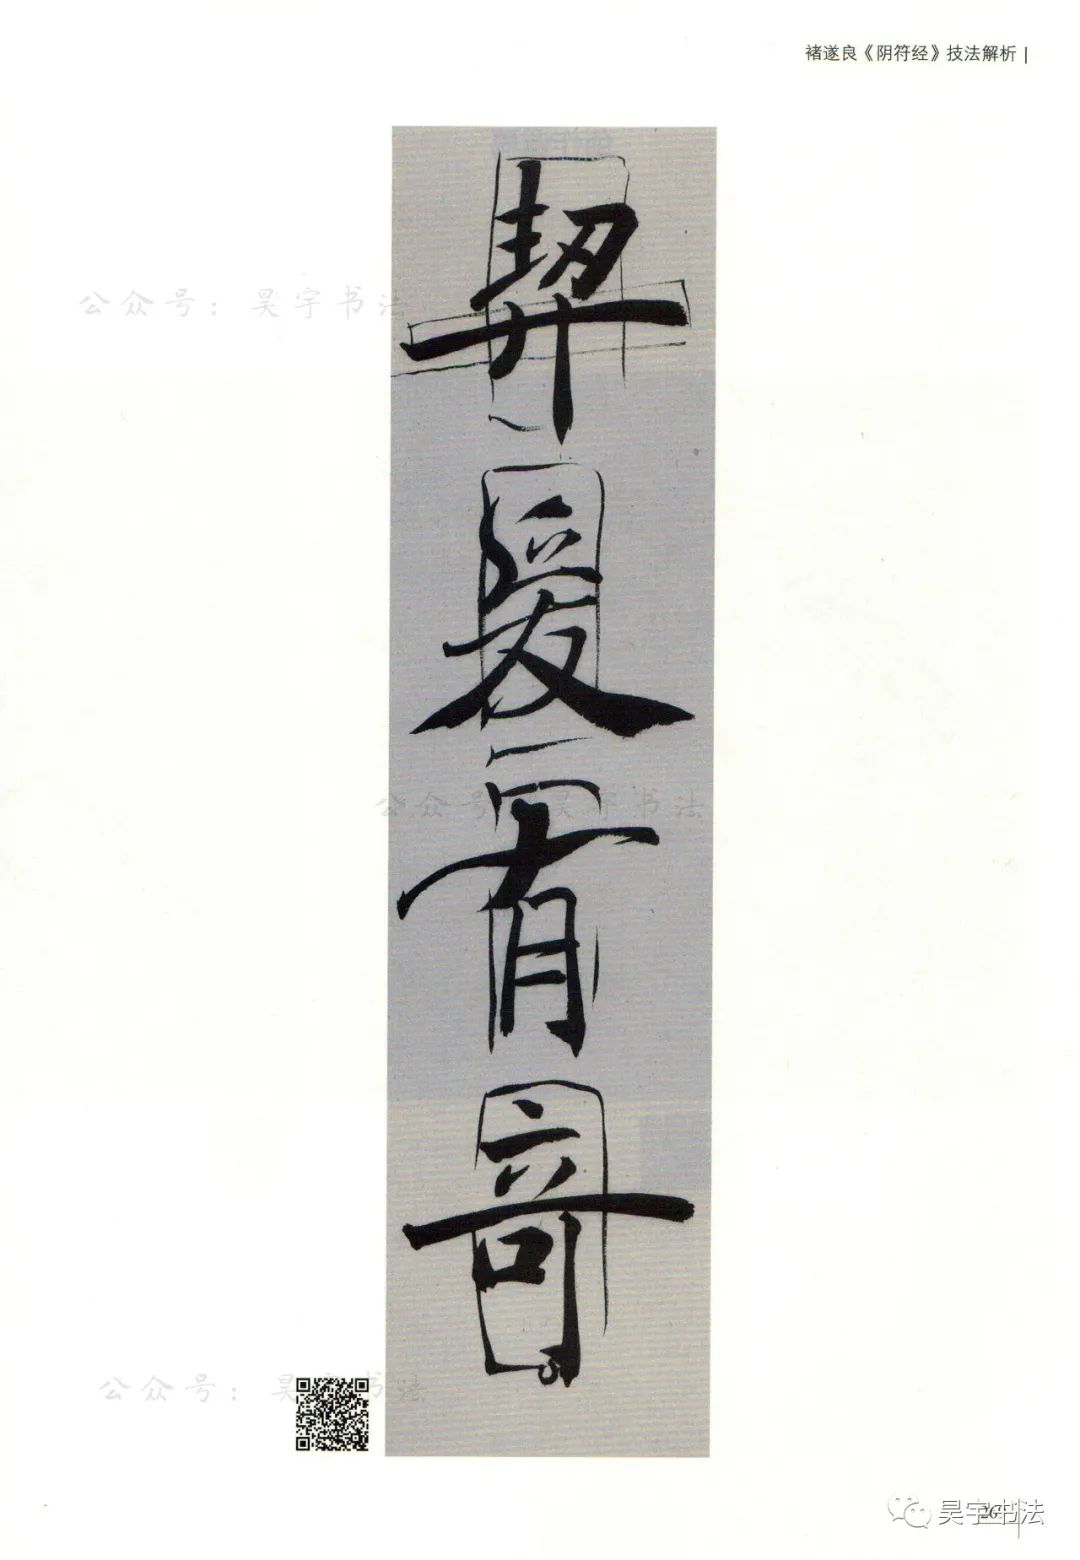 褚遂良《阴符经》技法解析
契
公众号：昊宇书法
爰
公众号：昊宇书法
有
竒
公众号：昊宇书法
昊宇书法